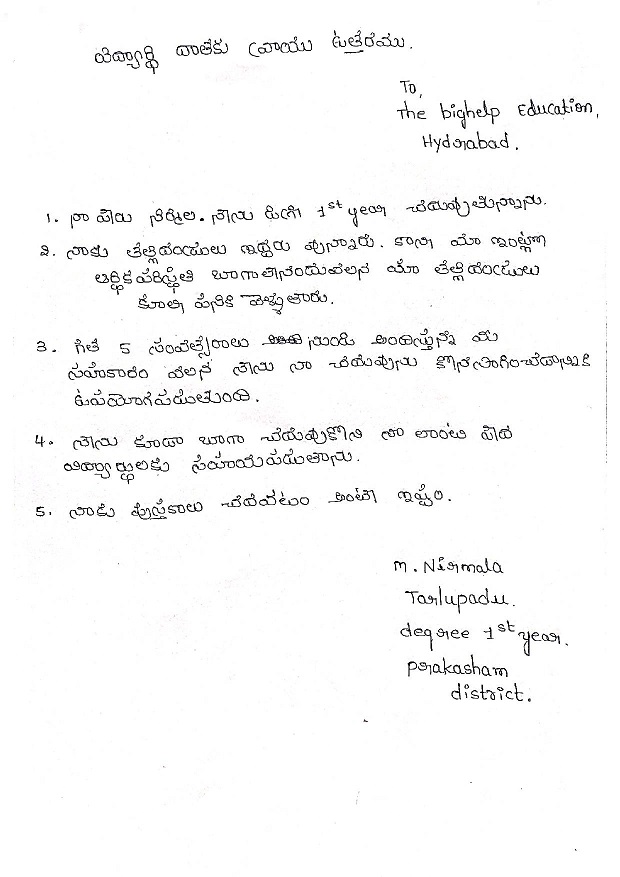 విద్యార్థి దాతకు వ్రాయు ఉత్తరము.
To,
The bighelp Education,
Hyderabad.
1. నా పేరు నిర్మల. నేను డిగ్రీ 1st year చదువుతున్నాను.
2. నాకు తల్లిదండ్రులు ఇద్దరు వున్నారు. కాని మా ఇంట్లో
ఆర్థిక పరిస్థితి బాగాలేనందువలన మా తల్లిదండ్రులు
కూలి పనికి వెళ్ళుతారు.
3. గత 5 సంవత్సరాలు నుండి అందిస్తున్న మీ
సహకారం వలన నేను నా చదువును కొనసాగించడానికి
ఉపయోగపడుతుంది.
4. నేను కూడా బాగా చదువుకొని నా లాంటి పేద
విద్యార్థులకు సహాయపడుతాను.
5. నాకు పుస్తకాలు చదవటం అంటే ఇష్టం.
M. Nirmala
Tarlupadu.
degree 1st year.
prakasham
district.